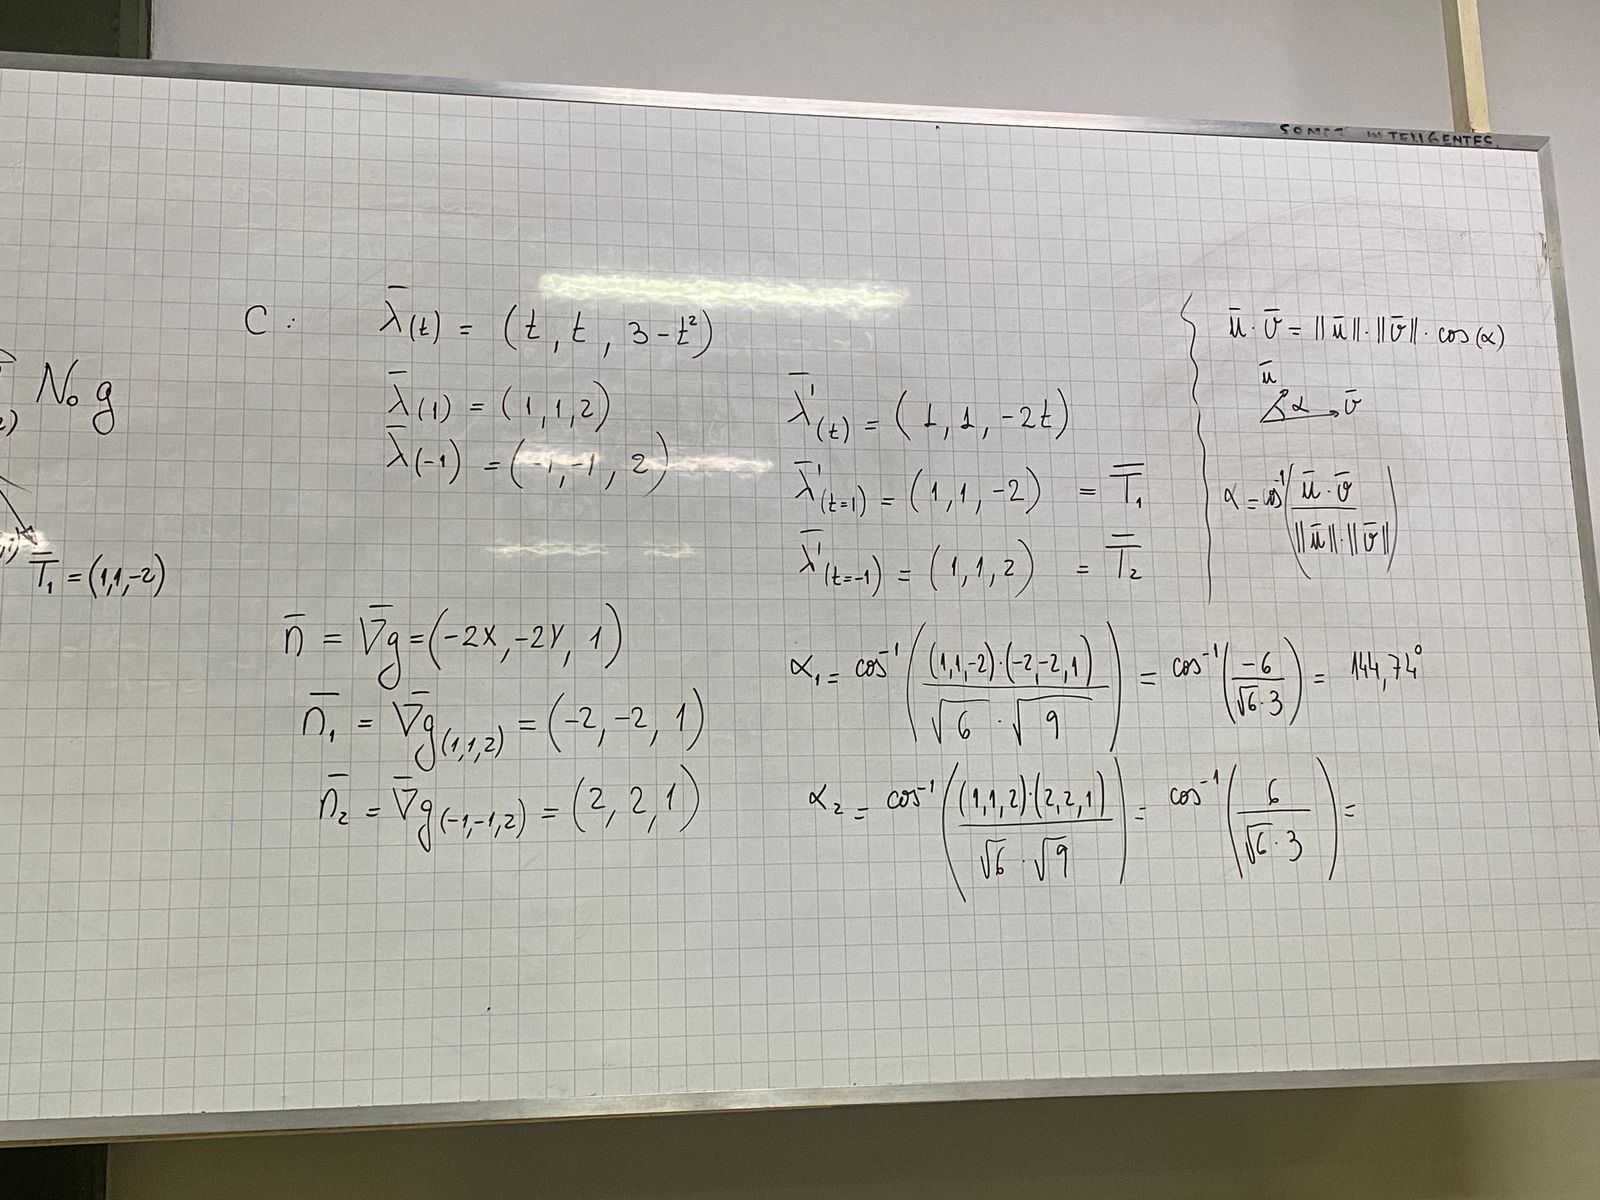 SOMOS INTELIGENTES.
C: λ̄(t) = (t, t, 3-t²)
λ̄(1) = (1,1,2)
λ̄(-1) = (-1,-1,2)
λ̄'(t) = (1,1,-2t)
λ̄'(t=1) = (1,1,-2) = T̄₁
λ̄'(t=-1) = (1,1,2) = T̄₂
ū·v̄ = ||ū||·||v̄||·cos(α)
ū
α v̄
α = cos⁻¹(ū·v̄ / ||ū||·||v̄||)
No g
T̄₁ = (1,1,-2)
n̄ = ∇̄g = (-2x, -2y, 1)
n̄₁ = ∇̄g(1,1,2) = (-2, -2, 1)
n̄₂ = ∇̄g(-1,-1,2) = (2, 2, 1)
α₁ = cos⁻¹((1,1,-2)·(-2,-2,1) / √6·√9) = cos⁻¹(-6 / √6·3) = 144,74°
α₂ = cos⁻¹((1,1,2)·(2,2,1) / √6·√9) = cos⁻¹(6 / √6·3) =